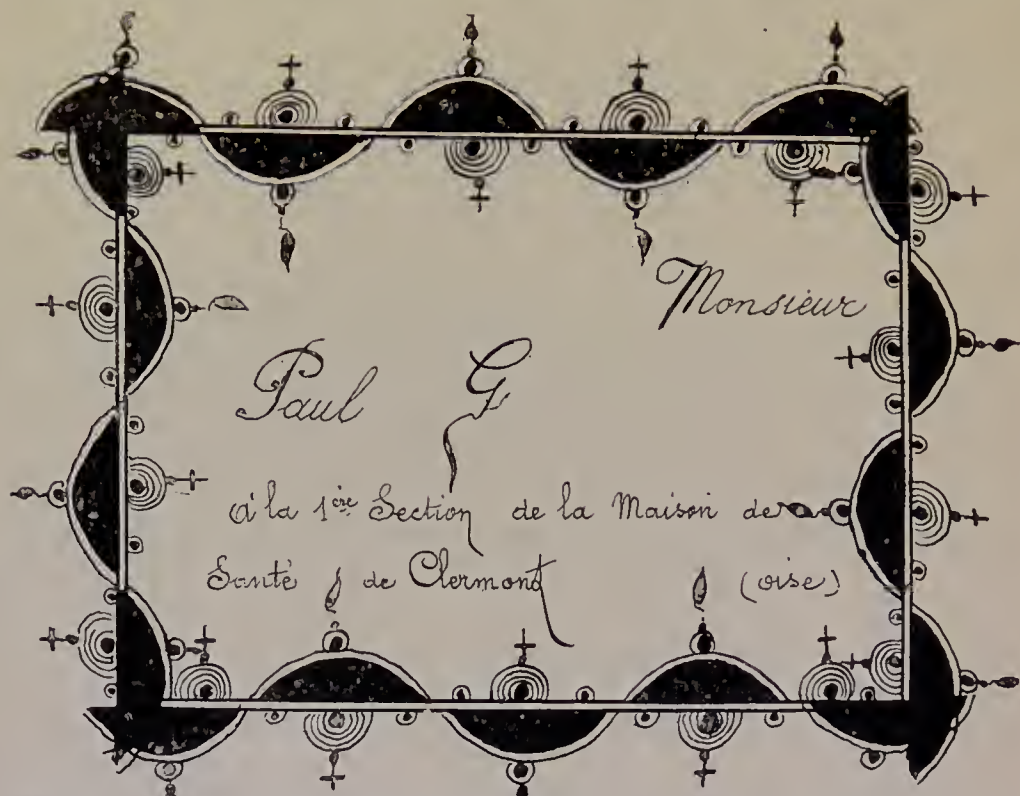 Monsieur
Paul G
à la 1ère Section de la Maison de
Santé de Clermont (oise)